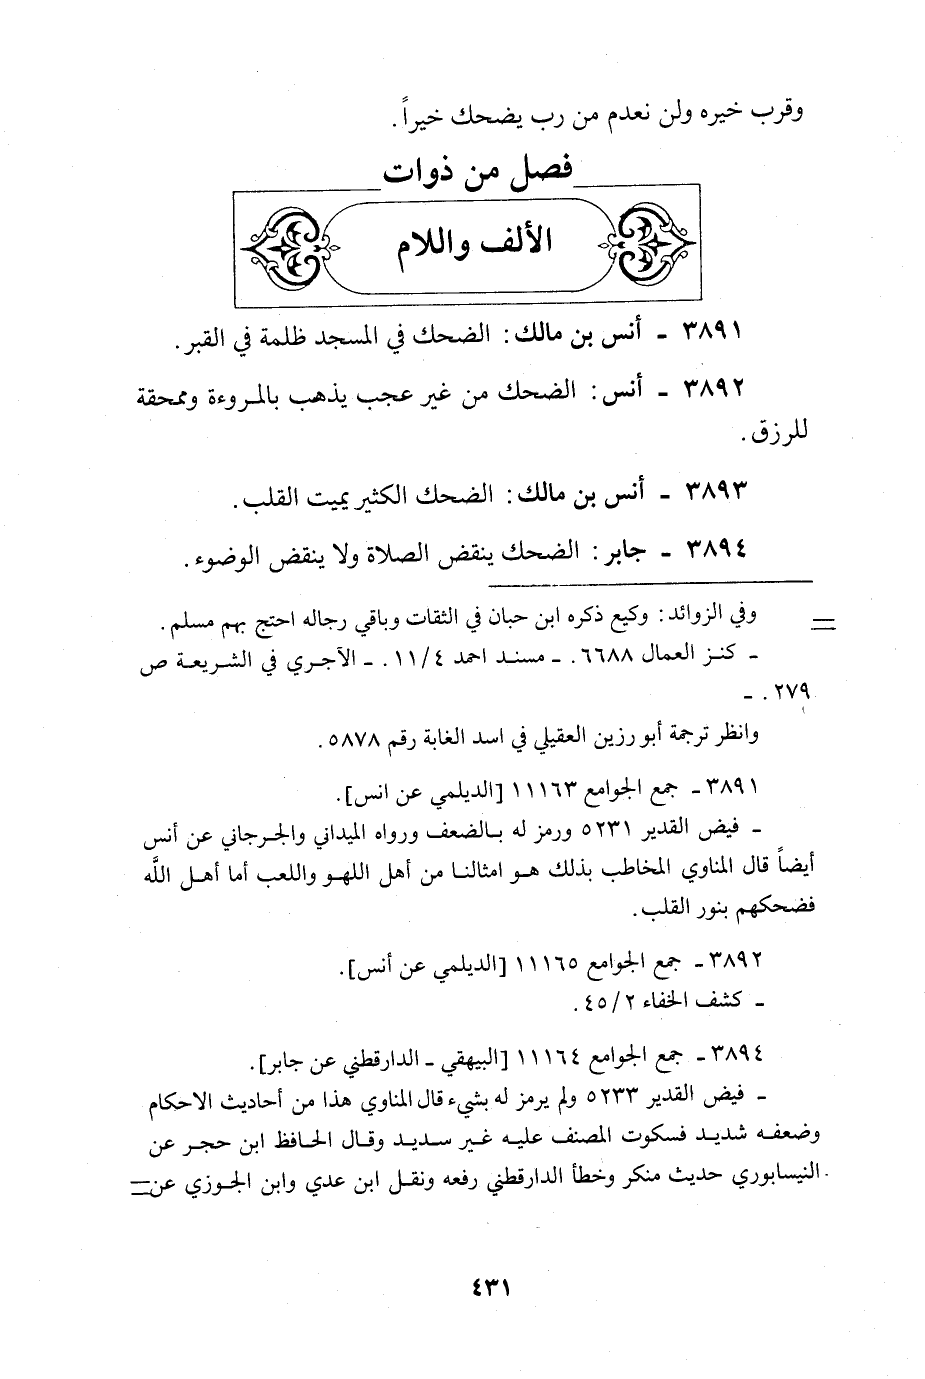 وقرب خيره ولن نعدم من رب يضحك خيراً.
فصل من ذوات
الألف واللام
٣٨٩١ - أنس بن مالك: الضحك في المسجد ظلمة في القبر.
٣٨٩٢ - أنس: الضحك من غير عجب يذهب بالمروءة وممحقة
للرزق.
٣٨٩٣ - أنس بن مالك: الضحك الكثير يميت القلب.
٣٨٩٤ - جابر: الضحك ينقض الصلاة ولا ينقض الوضوء.
= وفي الزوائد: وكيع ذكره ابن حبان في الثقات وباقي رجاله احتج بهم مسلم.
- كنز العمال ٦٦٨٨. - مسند احمد ١١/٤. - الآجري في الشريعة ص
٢٧٩. -
وانظر ترجمة أبو رزين العقيلي في اسد الغابة رقم ٥٨٧٨.
٣٨٩١ - جمع الجوامع ١١١٦٣ [الديلمي عن انس].
- فيض القدير ٥٢٣١ ورمز له بالضعف ورواه الميداني والجرجاني عن أنس
أيضاً قال المناوي المخاطب بذلك هو امثالنا من أهل اللهو واللعب أما أهل اللَّه
فضحكهم بنور القلب.
٣٨٩٢ - جمع الجوامع ١١١٦٥ [الديلمي عن أنس].
- كشف الخفاء ٤٥/٢.
٣٨٩٤ - جمع الجوامع ١١١٦٤ [البيهقي - الدارقطني عن جابر].
- فيض القدير ٥٢٣٣ ولم يرمز له بشيء قال المناوي هذا من أحاديث الاحكام
وضعفه شديد فسكوت المصنف عليه غير سديد وقال الحافظ ابن حجر عن
النيسابوري حديث منكر وخطأ الدارقطني رفعه ونقل ابن عدي وابن الجوزي عن =
٤٣١